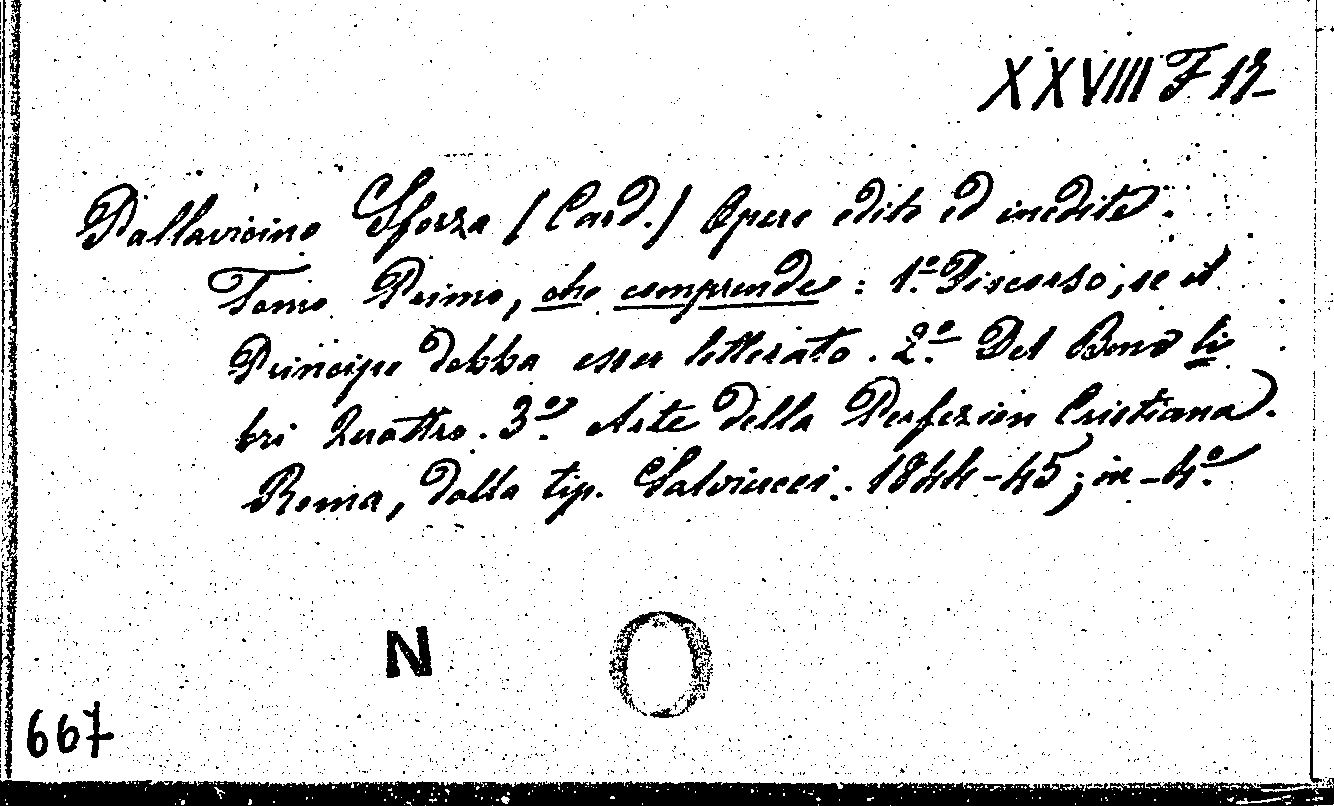 XXVIII F 12
Pallavicino Sforza (Card.) Opere edite ed inedite.
Tomo Primo, che comprende: 1.º Discorso, se il
Principe debba esser letterato. 2.º Del Bene li
bri Quattro. 3.º Arte della Perfezion Cristiana.
Roma, dalla tip. Salviucci. 1844-45; in-4.º
N
667